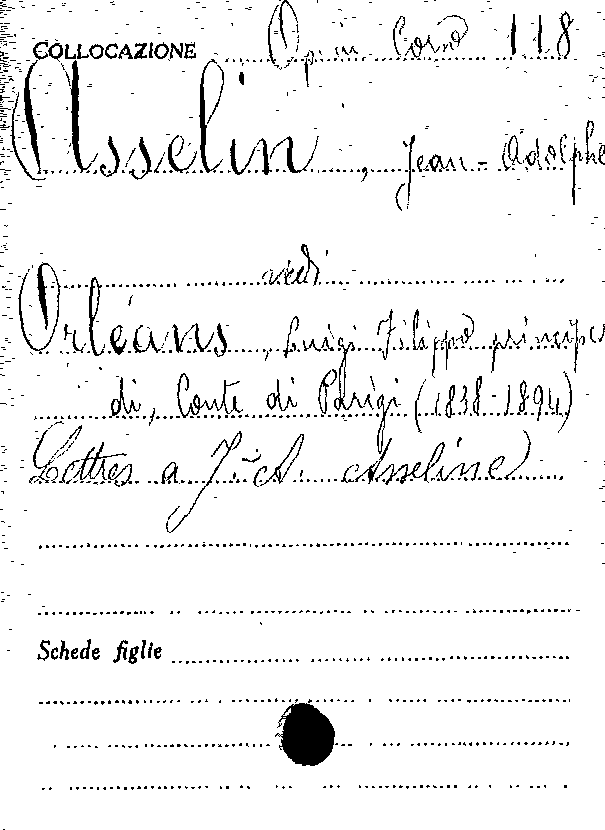 COLLOCAZIONE Op. in Corso 118
Asselin, Jean-Adolphe
vedi
Orléans, Luigi Filippo principe
di, Conte di Parigi (1838-1894)
Lettres a J.-A. Asseline
Schede figlie